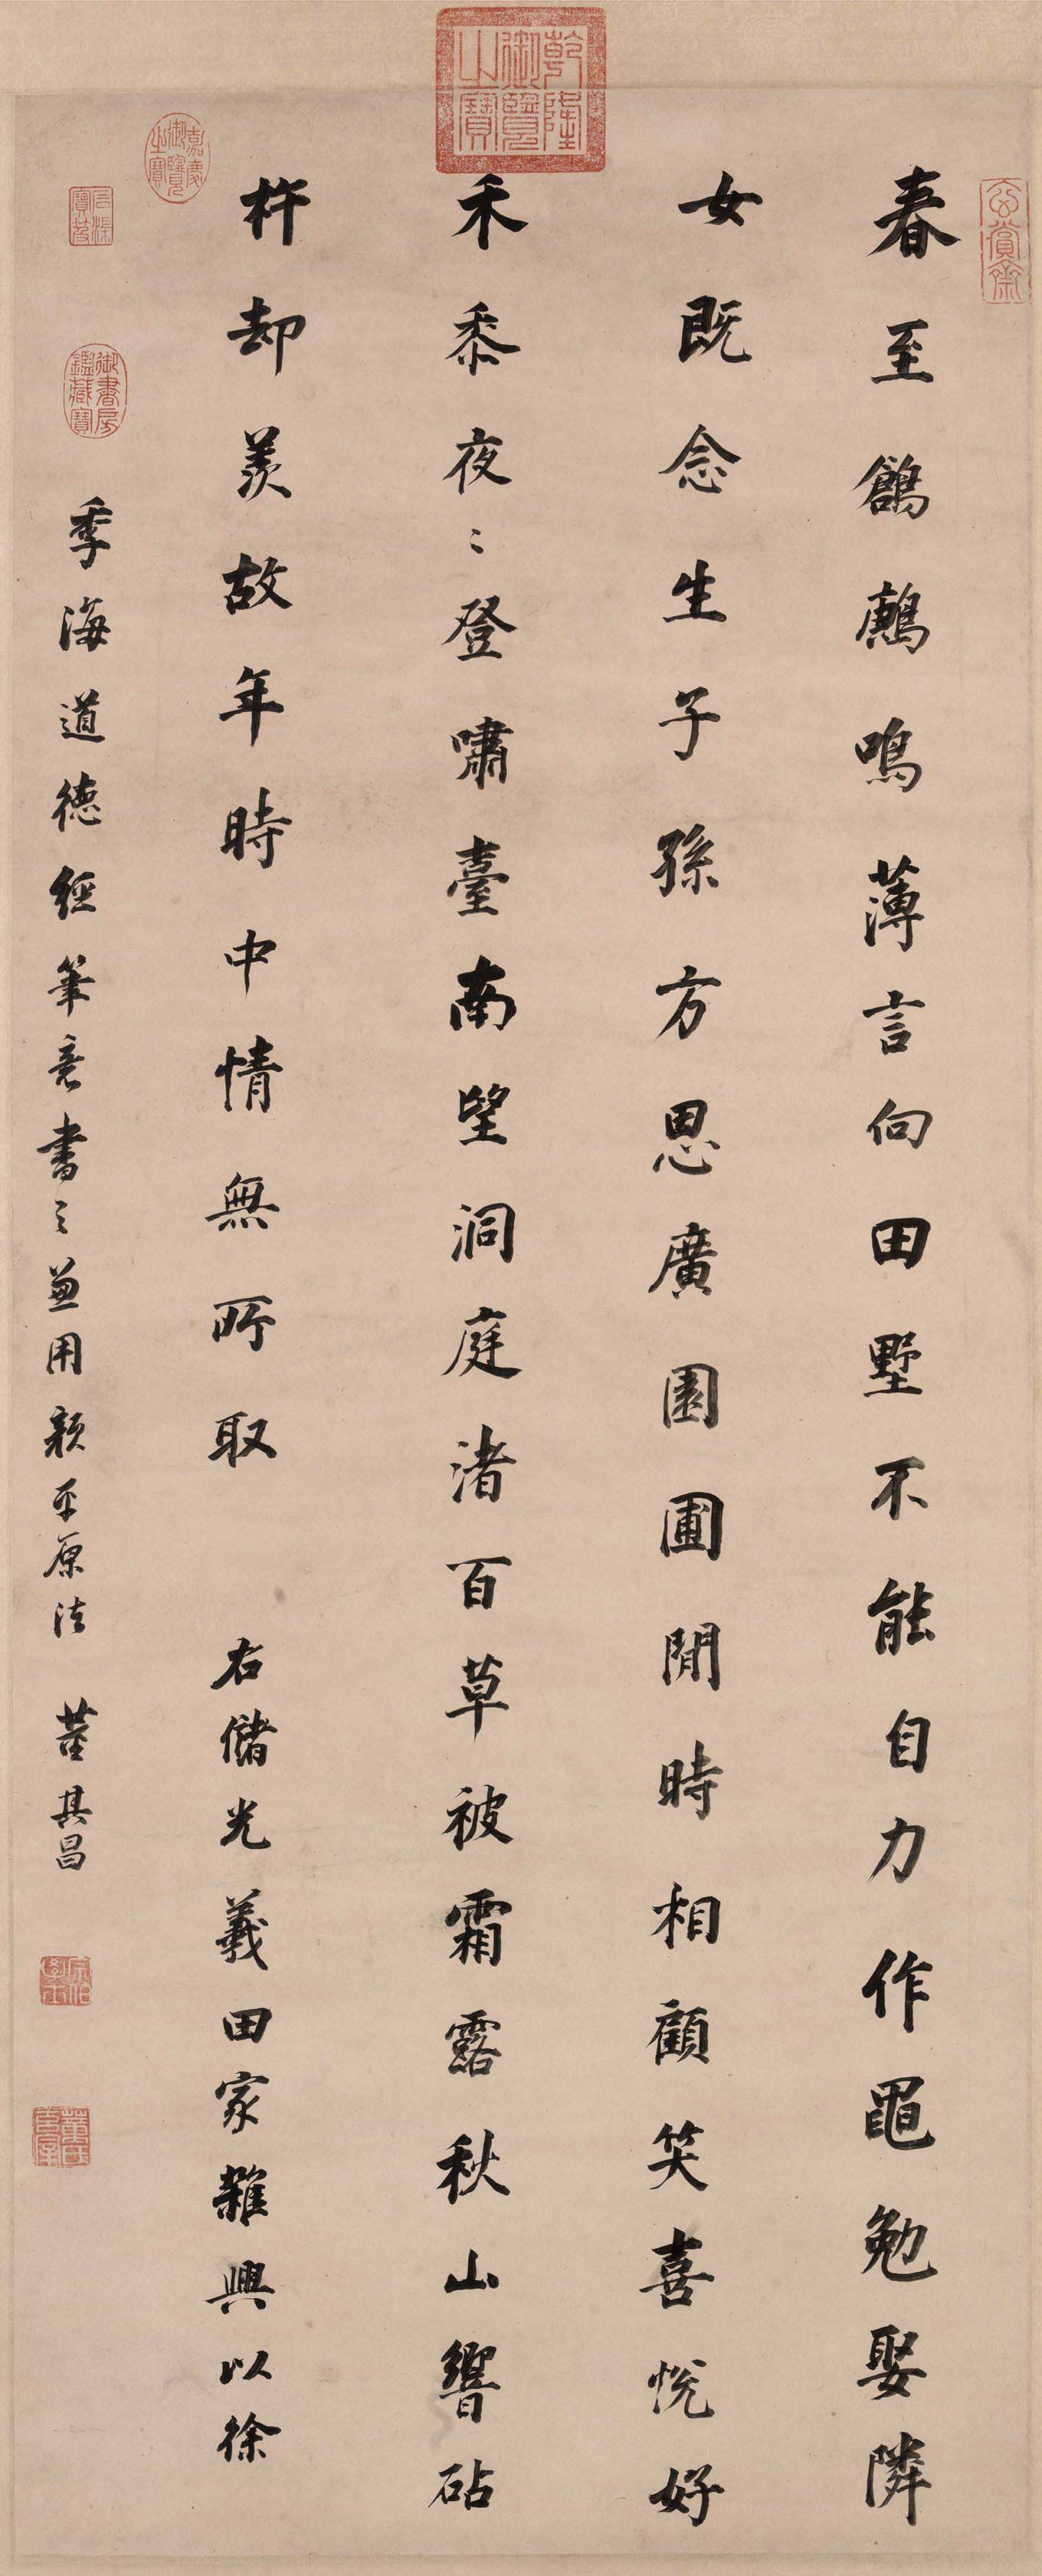 春至鶬鶊鳴薄言向田墅不能自力作黽勉娶隣
女既念生子孫方思廣園圃閒時相顧笑喜悅好
禾黍夜〻登嘯臺南望洞庭渚百草被霜露秋山響砧
杵却羨故年時中情無所取　右儲光羲田家雜興以徐
季海道德經筆意書之兼用顏平原法　董其昌
乾隆御覽之寶
嘉慶御覽之寶
石渠寶笈
御書房鑑藏寶
玄賞齋